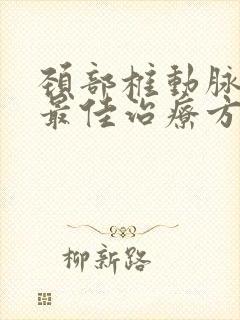 頸部椎動脉
最佳治療方
柳新路